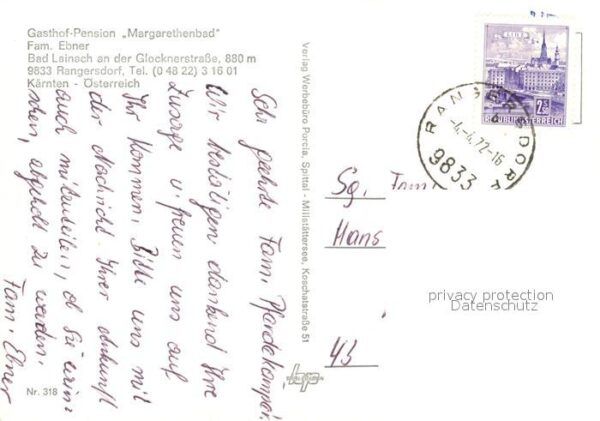 Gasthof-Pension „Margarethenbad"
Fam. Ebner
Bad Lainach an der Glocknerstraße, 880 m
9833 Rangersdorf, Tel. (0 48 22) 3 16 01
Kärnten - Österreich
Sehr geehrte Fam.
Wir bestätigen dankend Ihre
Zusage u. freuen uns auf
Ihr Kommen. Bitte uns mit
der Nachricht Ihrer Ankunft
auch mitzuteilen, ob Sie
abgeholt zu werden.
Fam. Ebner
Nr. 318
Verlag Werbebüro Purcia, Spittal - Millstättersee, Koschatstraße 51
LINZ
2.50
REPUBLIK ÖSTERREICH
RANGERSDORF
-4.-4.72-16
9833
Sg. Fam
Hans
43
privacy protection
Datenschutz